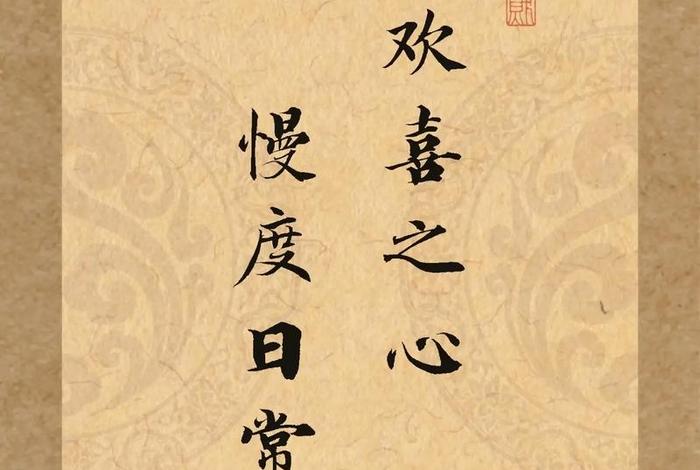 欢喜之心
慢度日常